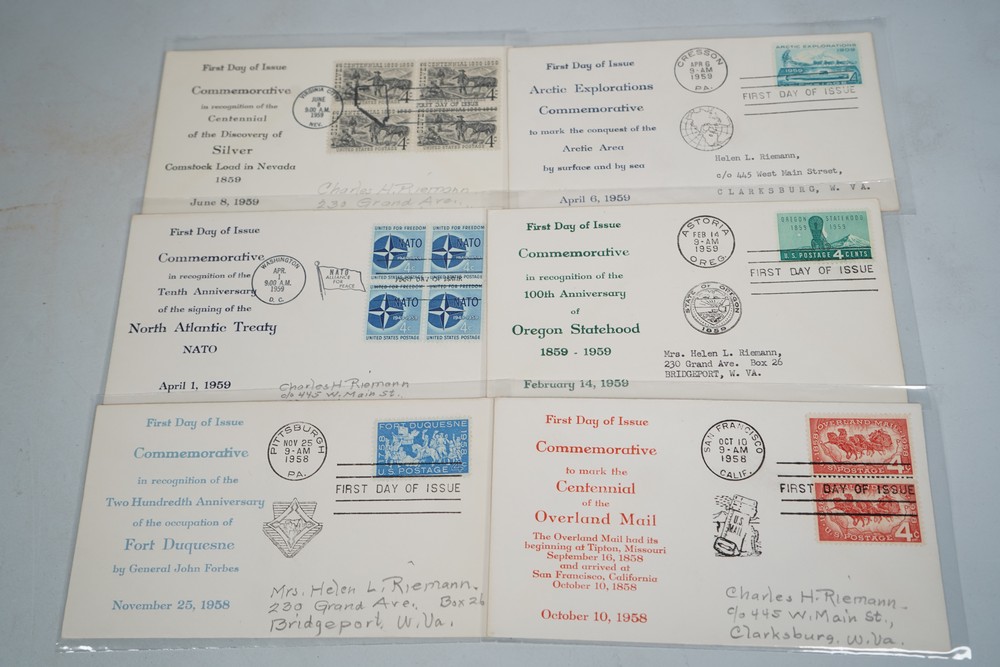 First Day of Issue
Commemorative
in recognition of the
Centennial
of the Discovery of
Silver
Comstock Load in Nevada
1859
June 8, 1959
VIRGINIA CITY
JUNE
8
9:00 A.M.
1959
NEV.
CENTENNIAL 1859 1959
4
UNITED STATES POSTAGE
FIRST DAY OF ISSUE
Charles H. Riemann
230 Grand Ave.
First Day of Issue
Arctic Explorations
Commemorative
to mark the conquest of the
Arctic Area
by surface and by sea
April 6, 1959
CRESSON
APR 6
9-AM
1959
PA.
ARCTIC EXPLORATIONS
1909
1959
FIRST DAY OF ISSUE
Helen L. Riemann,
c/o 445 West Main Street,
CLARKSBURG, W. VA.
First Day of Issue
Commemorative
in recognition of the
Tenth Anniversary
of the signing of the
North Atlantic Treaty
NATO
April 1, 1959
WASHINGTON
APR.
1
9:00 A.M.
1959
D. C.
NATO
ALLIANCE
FOR
PEACE
UNITED FOR FREEDOM
UNITED FOR FREEDOM
NATO
NATO
4c
UNITED STATES POSTAGE
FIRST DAY OF ISSUE
NATO
NATO
1949-1959
4c
4c
UNITED STATES POSTAGE
UNITED STATES POSTAGE
Charles H. Riemann
c/o 445 W. Main St.
First Day of Issue
Commemorative
in recognition of the
100th Anniversary
of
Oregon Statehood
1859 - 1959
February 14, 1959
ASTORIA
FEB 14
9-AM
1959
OREG.
OREGON STATEHOOD
1859 1959
U.S. POSTAGE 4 CENTS
FIRST DAY OF ISSUE
STATE OF OREGON
1859
Mrs. Helen L. Riemann,
230 Grand Ave. Box 26
BRIDGEPORT, W. VA.
First Day of Issue
Commemorative
in recognition of the
Two Hundredth Anniversary
of the occupation of
Fort Duquesne
by General John Forbes
November 25, 1958
PITTSBURGH
NOV 25
9-AM
1958
PA.
FORT DUQUESNE
1758
1958
U.S. POSTAGE 4c
FIRST DAY OF ISSUE
Mrs. Helen L. Riemann.
230 Grand Ave., Box 26
Bridgeport, W. Va.
First Day of Issue
Commemorative
to mark the
Centennial
of the
Overland Mail
The Overland Mail had its
beginning at Tipton, Missouri
September 16, 1858
and arrived at
San Francisco, California
October 10, 1858
October 10, 1958
SAN FRANCISCO
OCT 10
9-AM
1958
CALIF.
US
MAIL
OVERLAND MAIL
U.S. POSTAGE
4c
FIRST DAY OF ISSUE
U.S. POSTAGE
4c
Charles H. Riemann.
c/o 445 W. Main St.,
Clarksburg, W. Va.